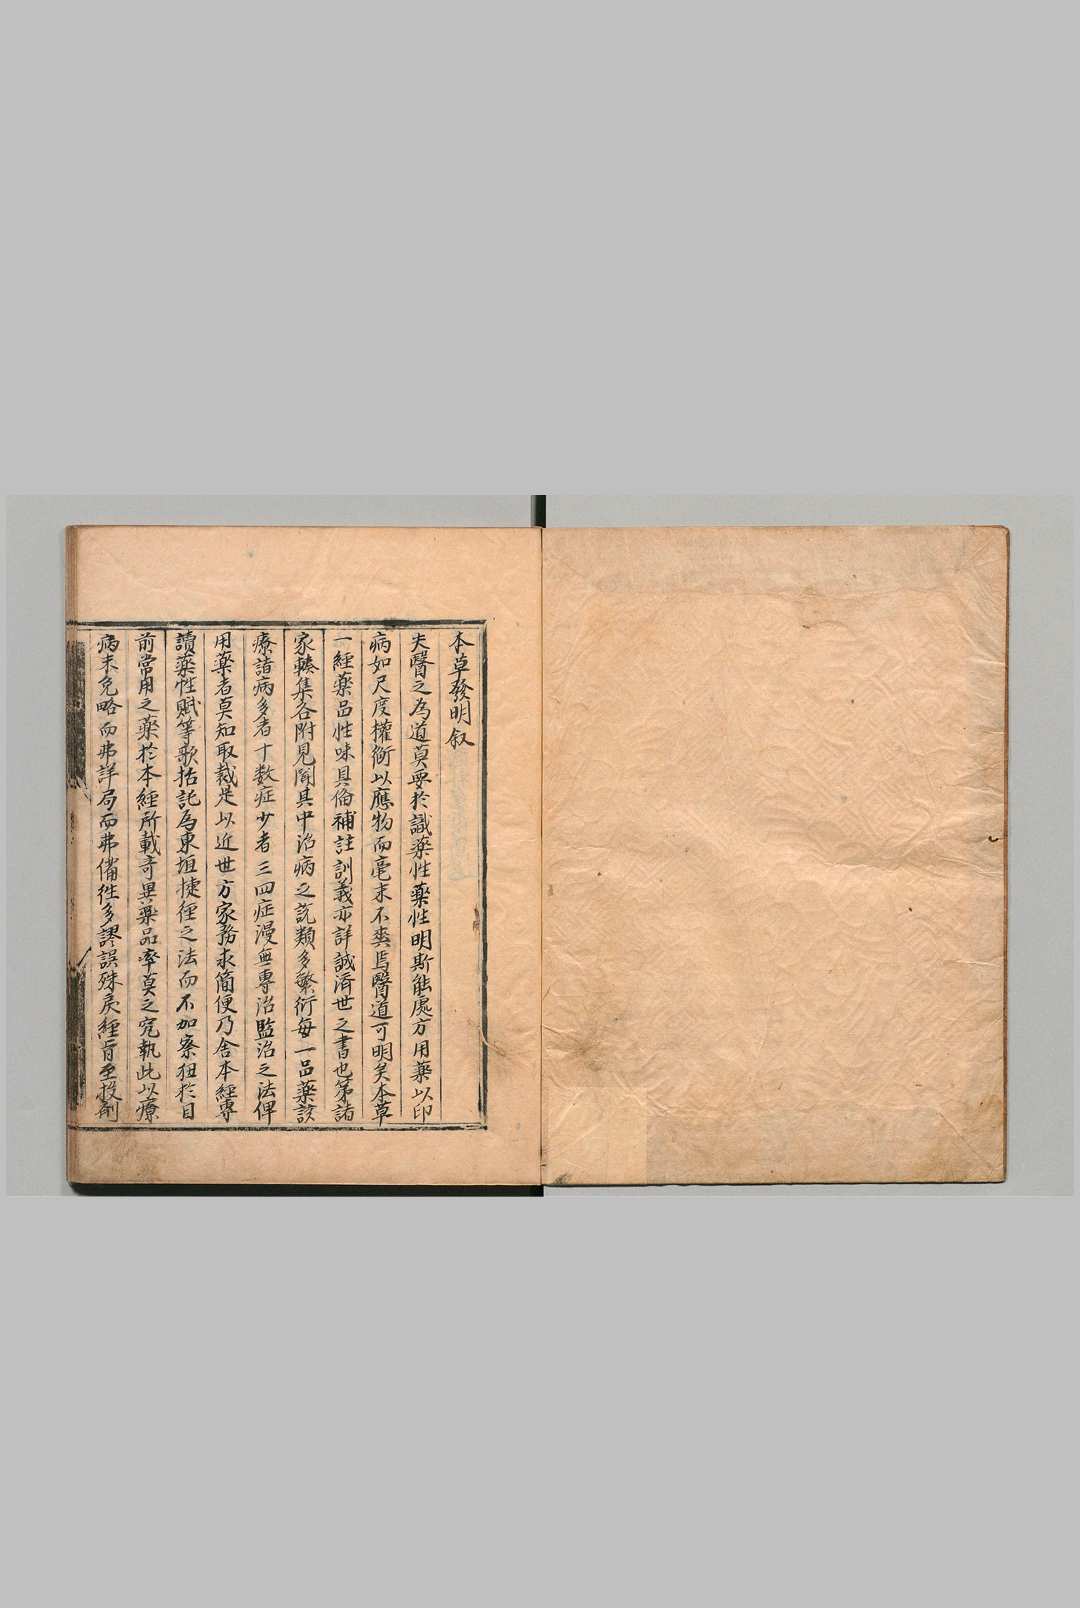 本草發明叙
夫醫之為道莫要於識藥性藥性明斯能處方用藥以印
病如尺度權衡以應物而毫末不爽焉醫道可明矣本草
一經藥品性味具俻補註訓義亦詳誠濟世之書也第諸
家輳集各附見聞其中治病之說類多繁衍每一品藥該
療諸病多者十数症少者三四症漫無專治監治之法俾
用藥者莫知取裁是以近世方家務求簡便乃舍本經專
讀藥性賦等歌括託為東垣捷徑之法而不加察狃於目
前常用之藥於本經所載奇異藥品率莫之究執此以療
病未免略而弗詳局而弗備徃多謬誤殊戾經旨至投劑